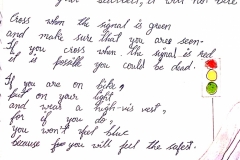 your            , it will not be
Cross when the signal is green
and make sure that you are seen.
If you cross when the signal is red,
it is possible you could be dead.
If you are on bike,
put on your light
and wear a high-vis vest,
for if you do,
you won't feel blue
because you will feel the safest.